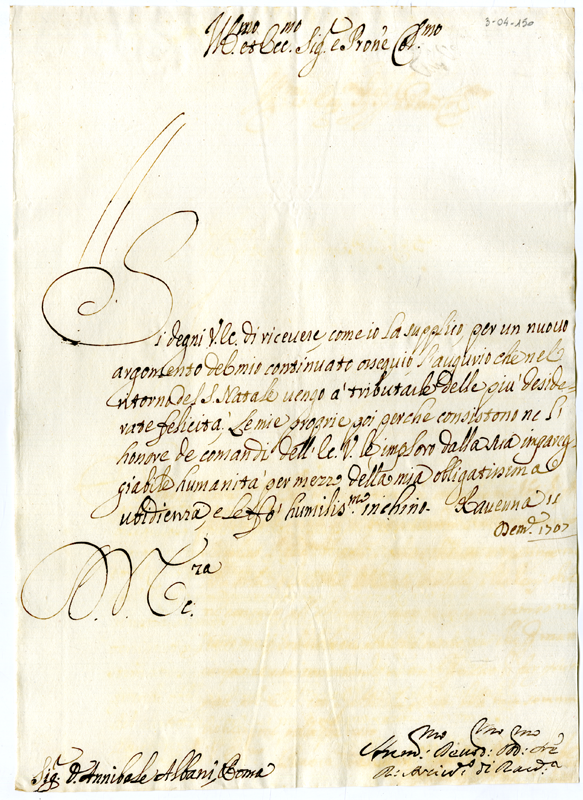 3-04-150
Ill.mo et Ecc.mo Sig.r e Pron'e Col.mo
Si degni V.Ec. di ricevere, come io La supplico, per un nuovo
argomento del mio continuato ossequio l'augurio che nel
ritorno del S. Natale vengo a' tributarle delle piu' deside-
rate felicita', Le mie proprie poi perche consistono ne l'
honore de comandi dell' Ec. V. le imploro dalla sua impareg
giabile humanita' per mezzo della mia obligatissima
ubidienza, e le fo' humiliss.mo inchino. Ravenna 11
Dem.e 1707
D. V. Ec.ra
Sig.r D. Annibale Albani Roma
Hum.mo Deuot.mo
di Rau.a